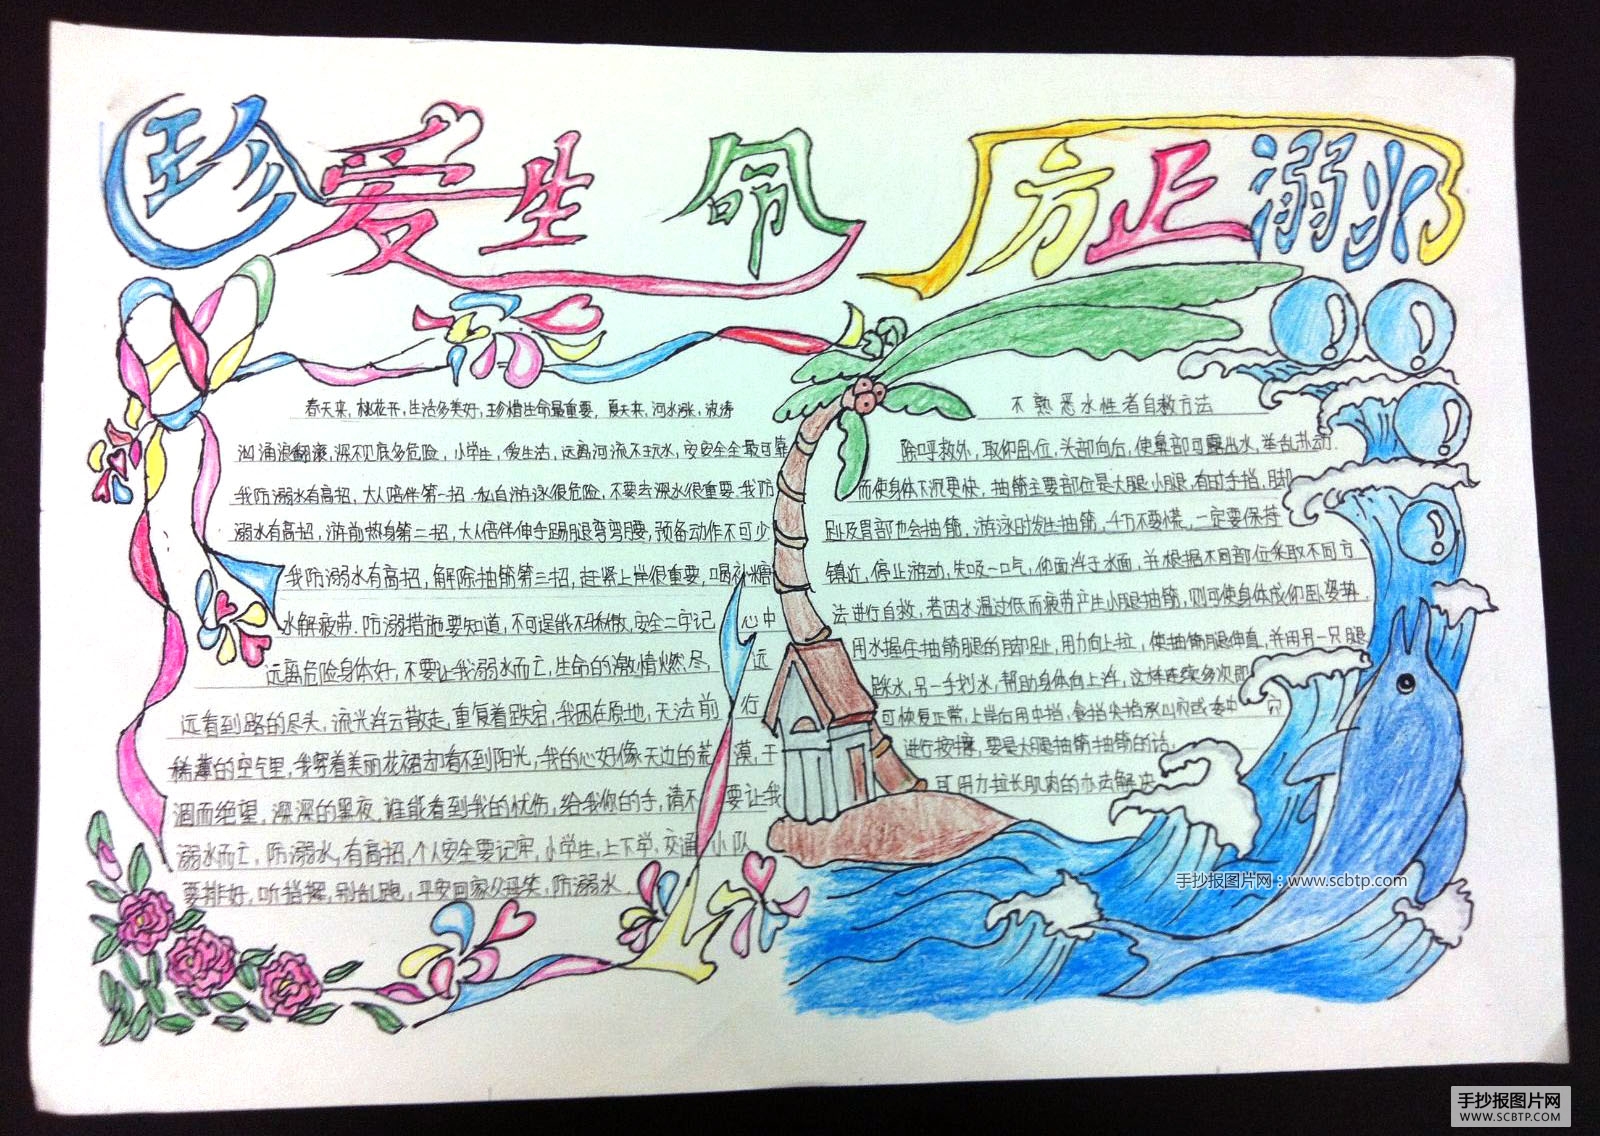 珍爱生命 防止溺水
春天来，桃花开，生活多美好，珍惜生命最重要，夏天来，河水涨，波涛
汹涌浪翻滚，深不见底多危险，小学生，爱生活，远离河流不玩水，安安全全最可靠
我防溺水有高招，大人陪伴第一招，私自游泳很危险，不要去深水很重要，我防
溺水有高招，游前热身第二招，大人倍伴伸手踢腿弯弯腰，预备动作不可少
我防溺水有高招，解除抽筋第三招，赶紧上岸很重要，喝补糖
水解疲劳，防溺措施要知道，不可逞能不松散，安全二字记 心中
远离危险身体好，不要让我溺水而亡，生命的激情燃尽， 远
远看到路的尽头，流光浮云散走，重复着跌宕，我困在原地，无法前 行
稀薄的空气里，我穿着美丽花裙却看不到阳光，我的心好像天边的荒 漠，干
涸而绝望，深深的黑夜，谁能看到我的忧伤，给我你的手，请不 要让我
溺水而亡，防溺水，有高招，个人安全要记牢，小学生，上下学，交通 小队
要排好，听指挥，别乱跑，平安回家父母笑，防溺水
不熟悉水性者自救方法
除呼救外，取仰卧位，头部向后，使鼻部可露出水，举乱扑动
而使身体下沉更快，抽筋主要部位是大腿小腿，有时手指，脚
趾及胃部也会抽筋，游泳时发生抽筋，千万不要慌，一定要保持
镇近，停止游动，先吸一口气，仰面浮于水面，并根据不同部位采取不同方
法进行自救，若因水温过低而疲劳产生小腿抽筋，则可使身体成仰卧姿势
用水握住抽筋腿的脚趾，用力向上拉，使抽筋腿伸直，并用另一只腿
踩水，另一手划水，帮助身体向上浮，这样连续多次即
可恢复正常，上岸后用中指，食指尖指承山穴或委中 穴
进行按摩，要是大腿抽筋抽筋的话，
可用力拉长肌肉的办法解决
手抄报图片网：www.scbtp.com
手抄报图片网
WWW.SCBTP.COM